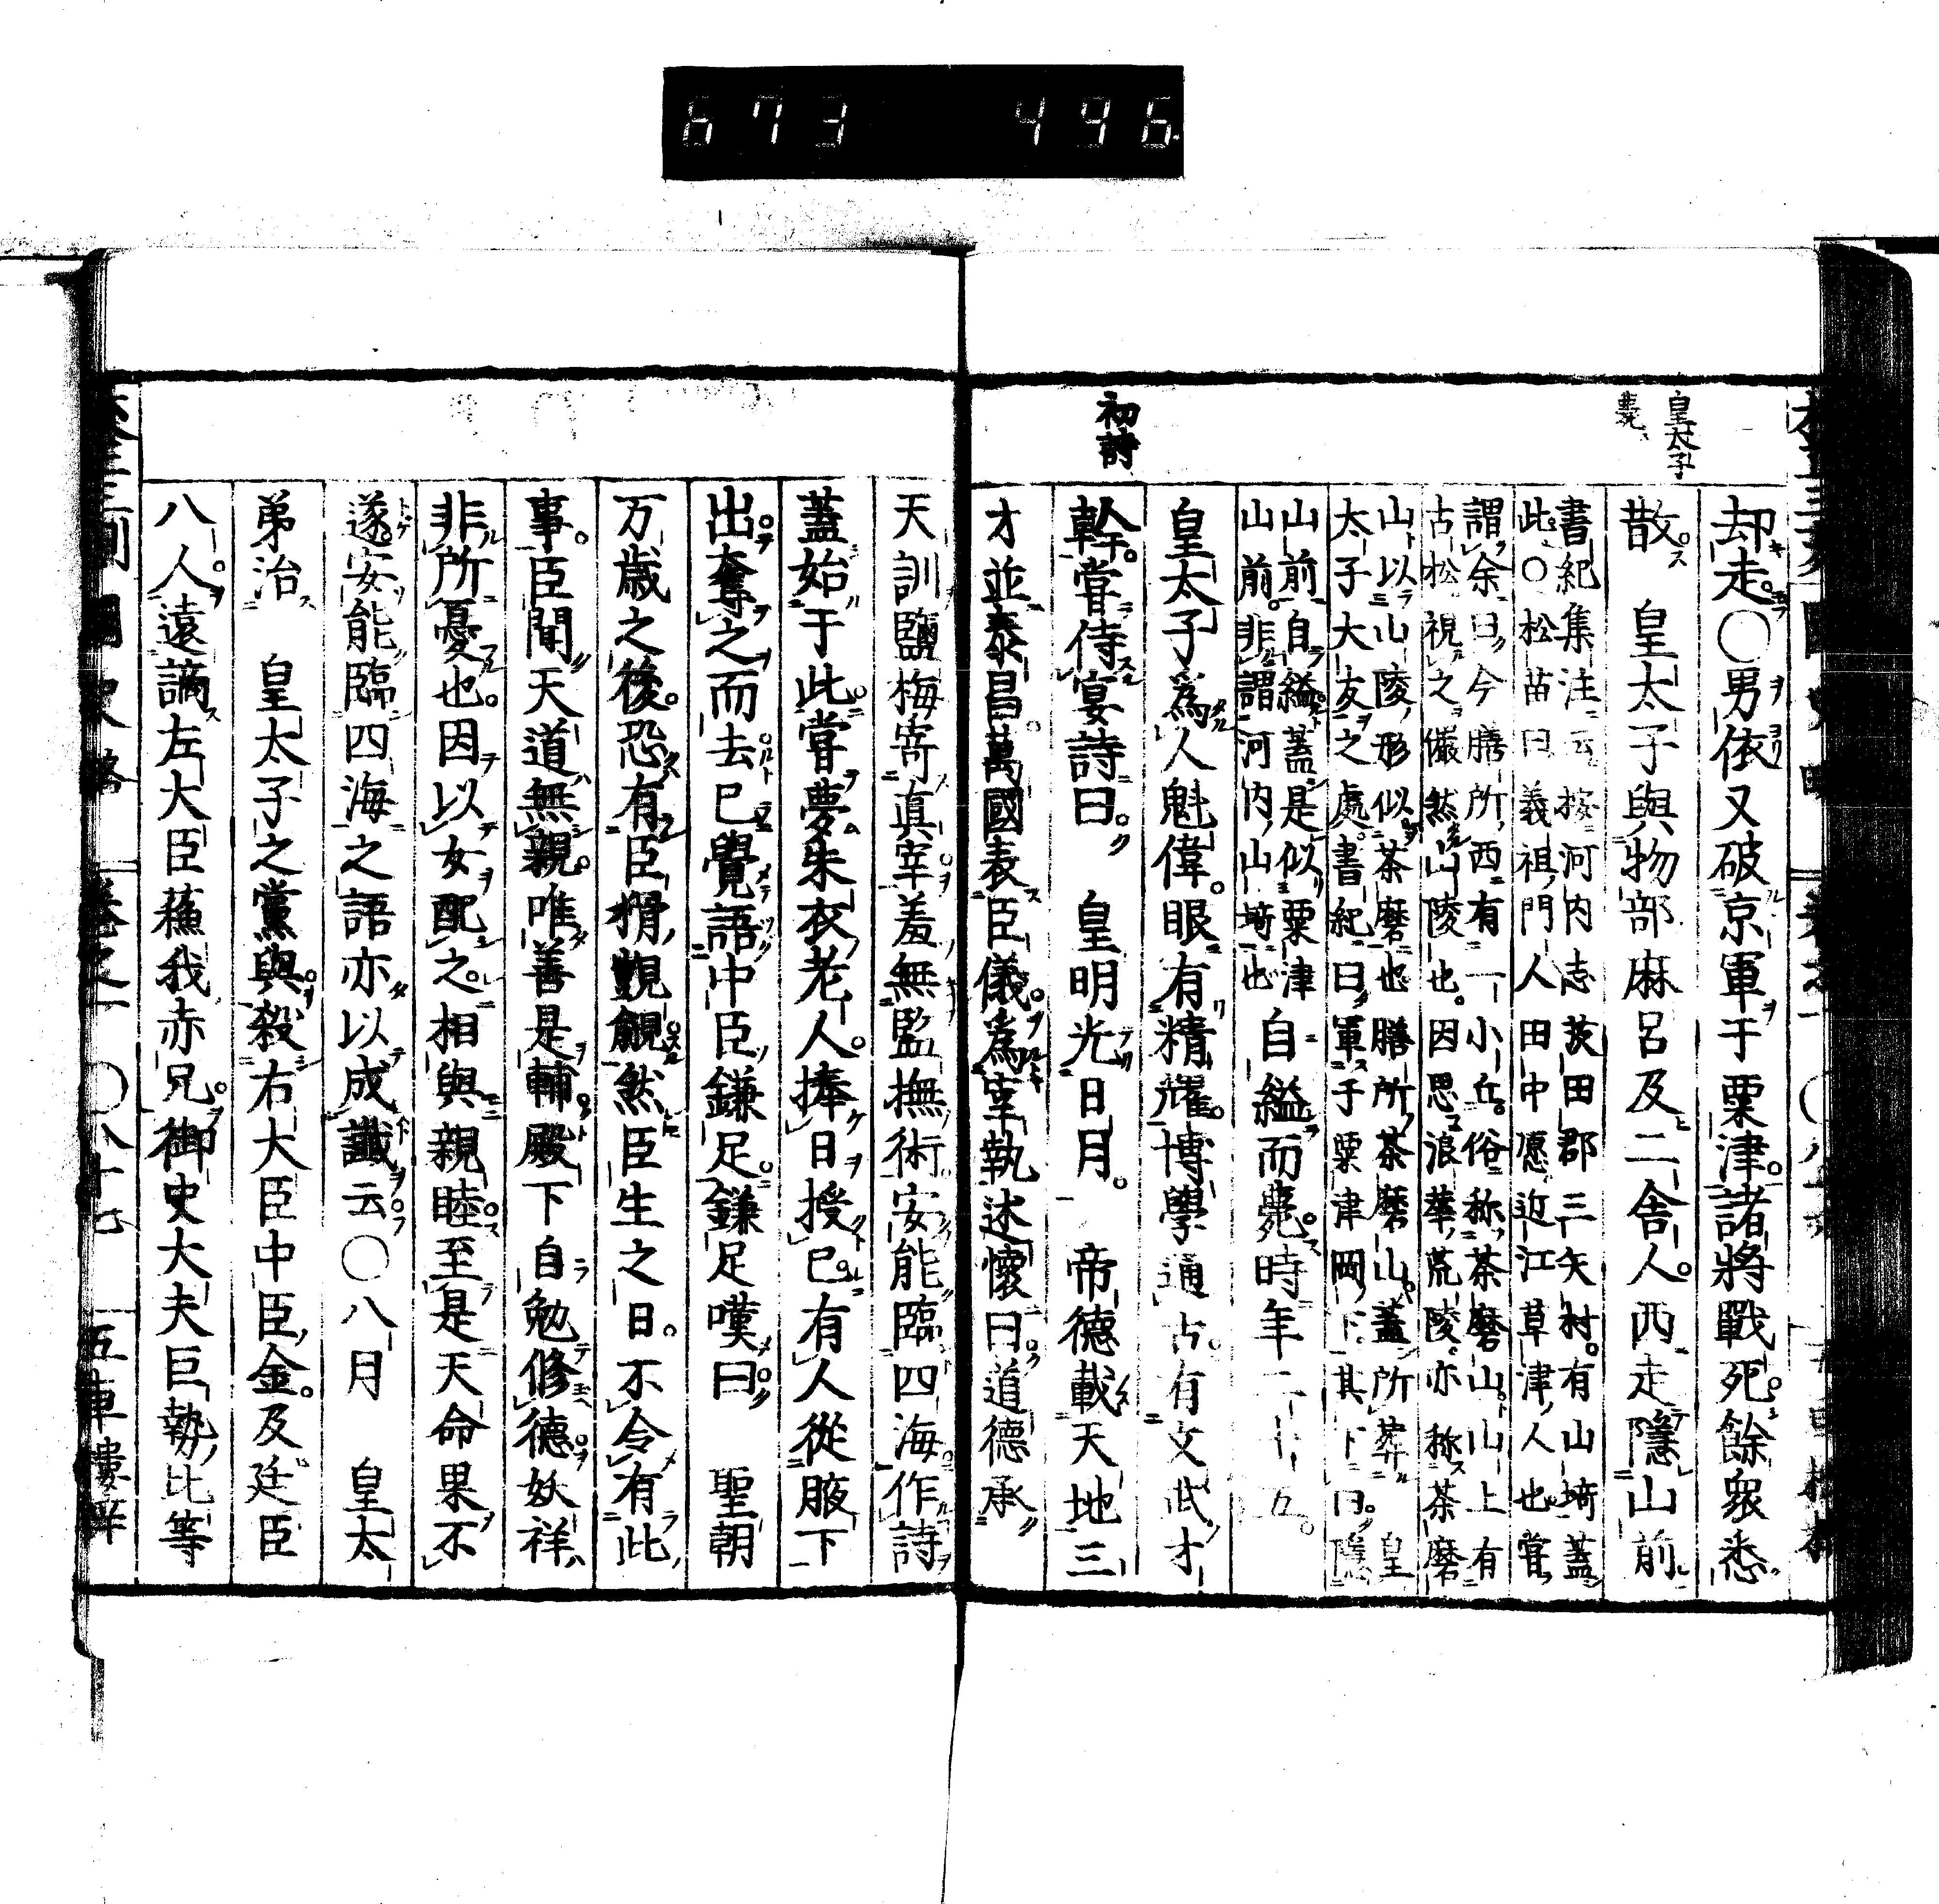 673 496
皇太子
薨
却走。○男依又破京軍于粟津。諸將戰死。餘衆悉
散。 皇太子與物部麻呂及二舍人。西走隱山前
書紀集注云按河内志茨田郡三矢村。有山埼蓋
此○松苗曰義祖門人田中應近江草津人也嘗
謂余曰今膳所西有一小丘。俗称茶磨山山上有
古松視之儼然山陵也。因思浪華荒陵亦称茶磨
山以山陵形似茶磨也膳所茶磨山。蓋所葬 皇
太子大友之處。書紀曰軍于粟津岡下其下曰。隱
山前自縊蓋是似粟津
山前。非謂河内山埼也
自縊而薨。時年二十五。
皇太子爲人魁偉。眼有精耀。博學通古。有文武才
初詩
幹。嘗侍宴詩曰。 皇明光日月。 帝德載天地三
才並泰昌。萬國表臣儀。爲宰執述懷曰。道德承
天訓鹽梅寄真宰羞無監撫術安能臨四海。作詩
蓋始于此。嘗夢朱衣老人。捧日授己。有人從腋下
出。奪之而去已覺語中臣鎌足。鎌足嘆曰。 聖朝
万歳之後。恐有臣猾覬覦然臣生之日。不令有此
事。臣聞天道無親。唯善是輔。殿下自勉修德。妖祥
非所憂也。因以女配之。相與親睦。至是天命果不
遂。安能臨四海之語亦以成讖云。○八月 皇太
弟治 皇太子之黨與。殺右大臣中臣金。及廷臣
八人。遠謫左大臣蘇我赤兄。御史大夫巨勢比等
卷之一 ○八十七 五車樓梓